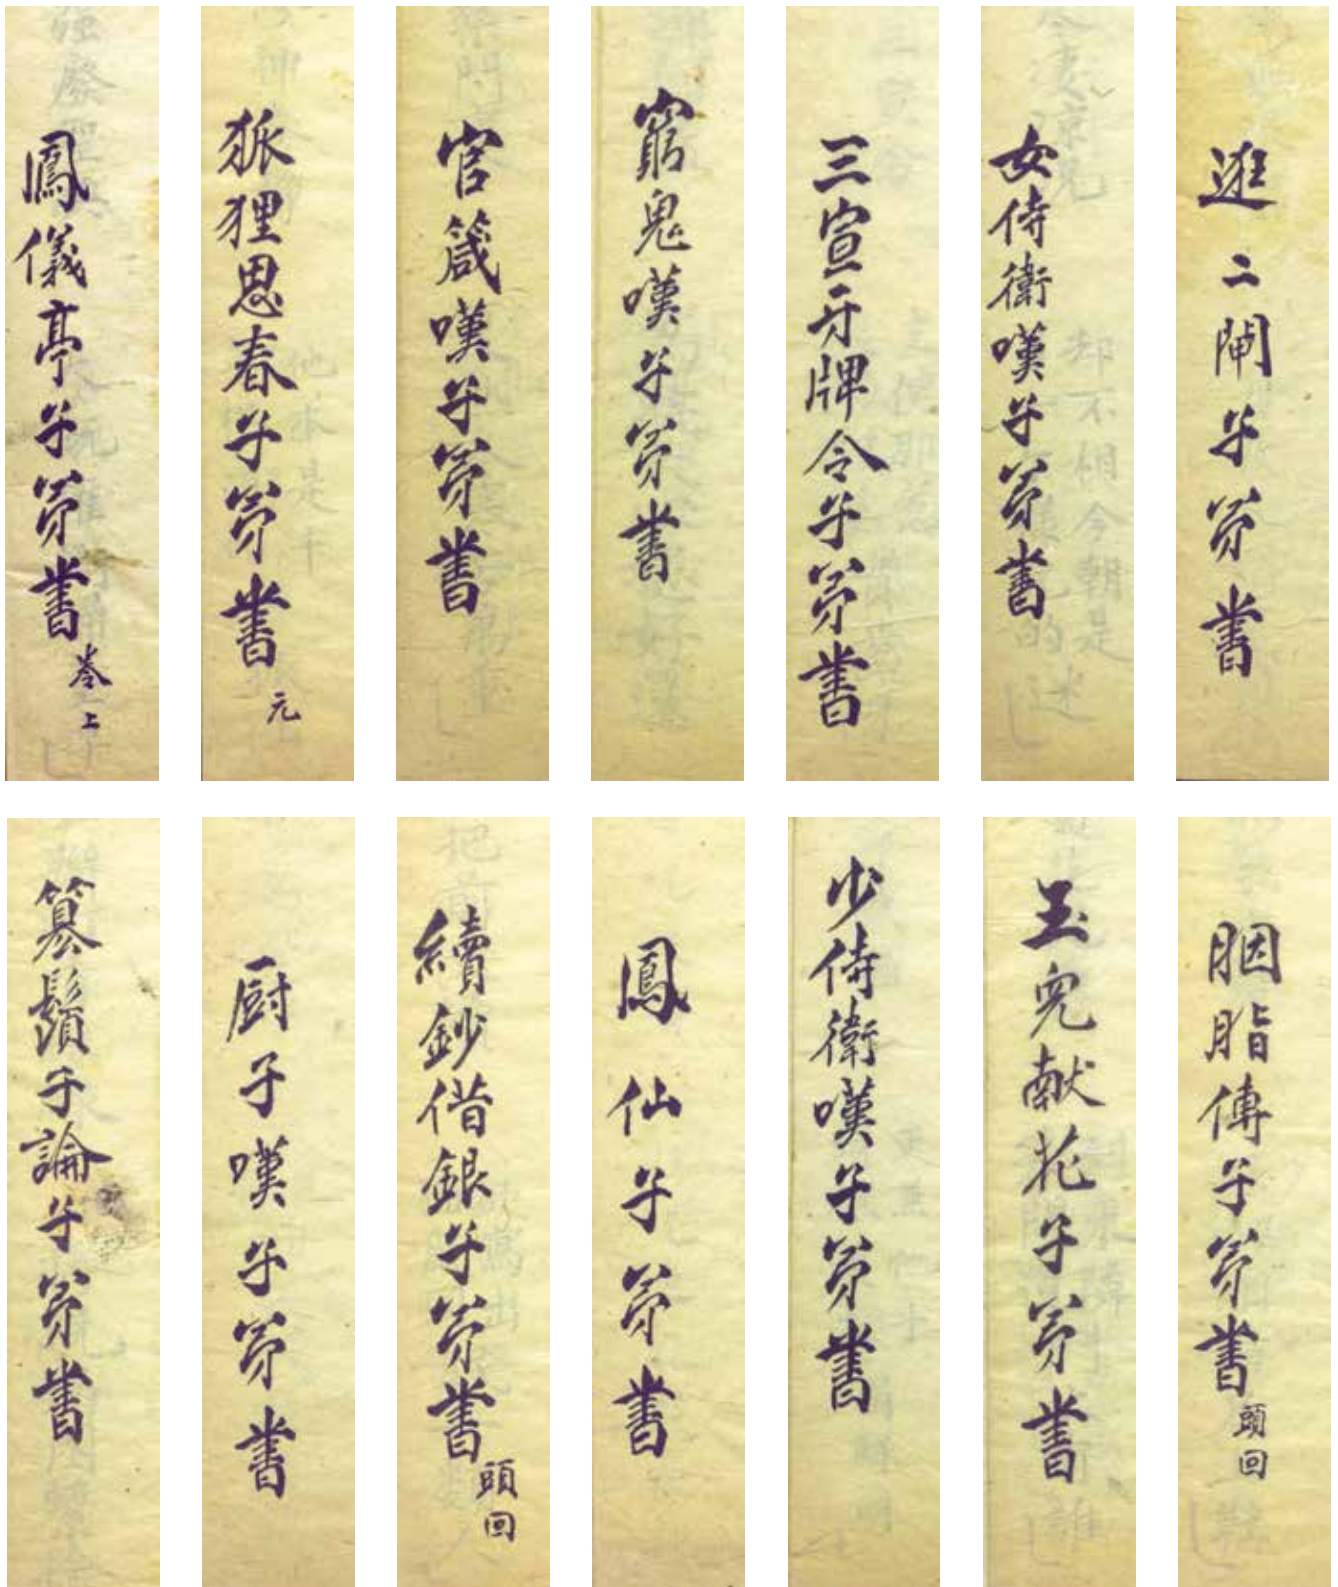 逛二閘子苐書
女侍衛嘆子苐書
三宣牙牌令子苐書
窮鬼嘆子苐書
官箴嘆子苐書
狐狸思春子苐書 元
鳳儀亭子苐書 卷上
胭脂傳子苐書 頭回
玉兒献花子苐書
少侍衛嘆子苐書
鳳仙子苐書
續鈔借銀子苐書 頭回
厨子嘆子苐書
篡鬚子論子苐書